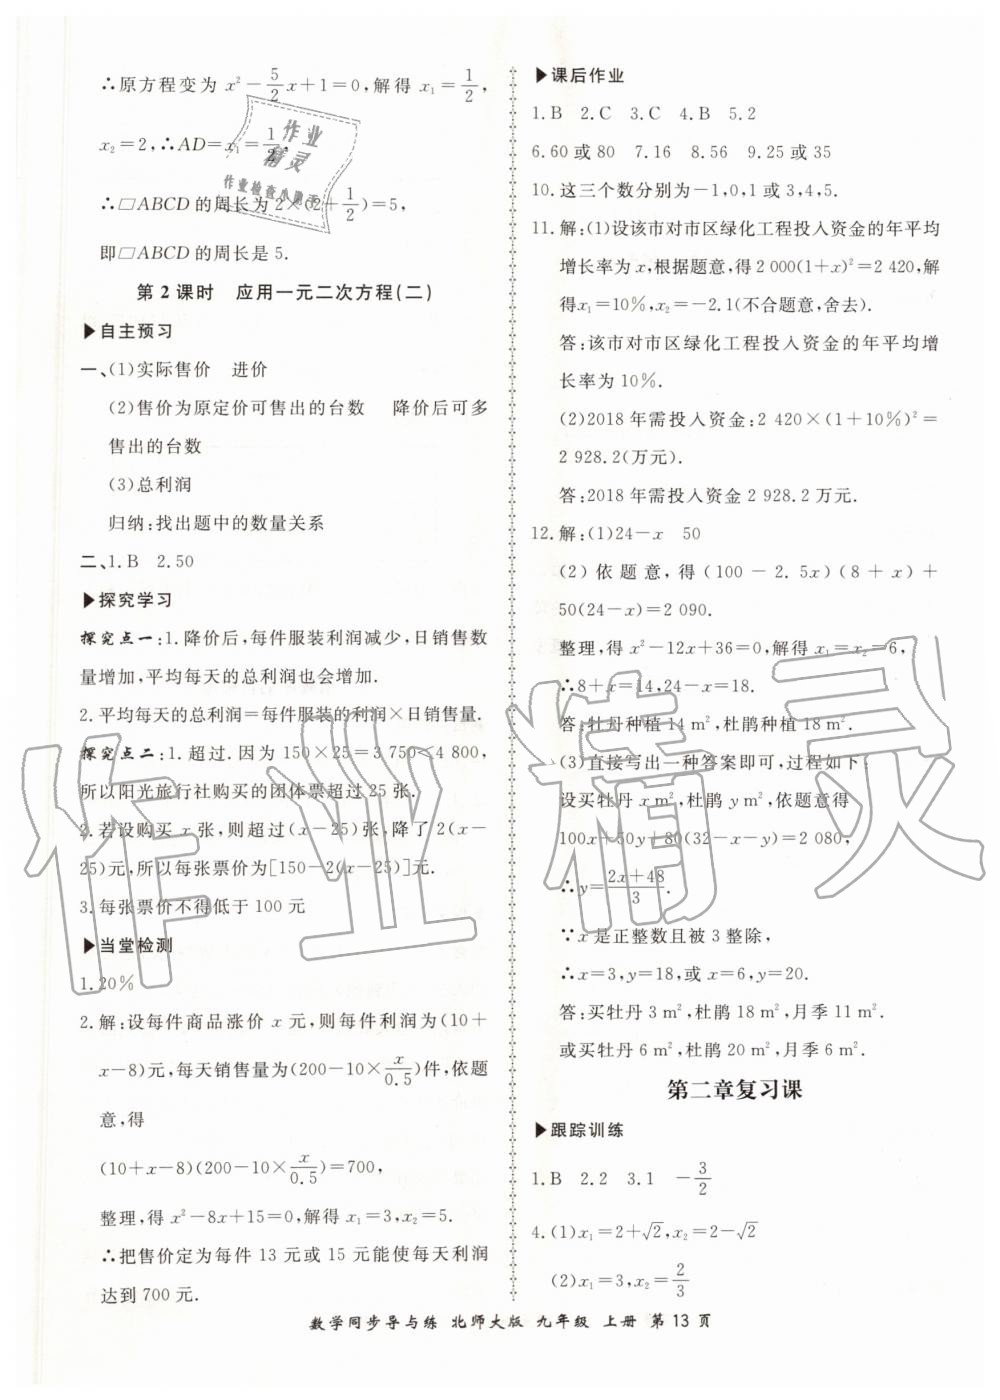 ∴原方程变为 x²－5/2x＋1＝0,解得 x₁＝1/2,
x₂＝2,∴AD＝x₁＝1/2.
∴□ABCD 的周长为 2×(2＋1/2)＝5,
即□ABCD 的周长是 5.
第 2 课时 应用一元二次方程(二)
▶自主预习
一、(1)实际售价 进价
(2)售价为原定价可售出的台数 降价后可多
售出的台数
(3)总利润
归纳:找出题中的数量关系
二、1.B 2.50
▶探究学习
探究点一:1.降价后,每件服装利润减少,日销售数
量增加,平均每天的总利润也会增加.
2.平均每天的总利润＝每件服装的利润×日销售量.
探究点二:1.超过.因为 150×25＝3 750<4 800,
所以阳光旅行社购买的团体票超过 25 张.
2.若设购买 x 张,则超过(x－25)张,降了 2(x－
25)元,所以每张票价为[150－2(x－25)]元.
3.每张票价不得低于 100 元
▶当堂检测
1.20%
2.解:设每件商品涨价 x 元,则每件利润为(10＋
x－8)元,每天销售量为(200－10×x/0.5)件,依题
意,得
(10＋x－8)(200－10×x/0.5)＝700,
整理,得 x²－8x＋15＝0,解得 x₁＝3,x₂＝5.
∴把售价定为每件 13 元或 15 元能使每天利润
达到 700 元.
▶课后作业
1.B 2.C 3.C 4.B 5.2
6.60 或 80 7.16 8.56 9.25 或 35
10.这三个数分别为－1,0,1 或 3,4,5.
11.解:(1)设该市对市区绿化工程投入资金的年平均
增长率为 x,根据题意,得 2 000(1＋x)²＝2 420,解
得x₁＝10%,x₂＝－2.1(不合题意,舍去).
答:该市对市区绿化工程投入资金的年平均增
长率为 10%.
(2)2018 年需投入资金:2 420×(1＋10%)²＝
2 928.2(万元).
答:2018 年需投入资金 2 928.2 万元.
12.解:(1)24－x 50
(2)依题意,得(100－2.5x)(8＋x)＋
50(24－x)＝2 090.
整理,得 x²－12x＋36＝0,解得 x₁＝x₂＝6,
∴8＋x＝14,24－x＝18.
答:牡丹种植 14 m²,杜鹃种植 18 m².
(3)直接写出一种答案即可,过程如下:
设买牡丹 x m²,杜鹃 y m²,依题意得
100x＋50y＋80(32－x－y)＝2 080,
∴y＝(2x＋48)/3.
∵x 是正整数且被 3 整除,
∴x＝3,y＝18,或 x＝6,y＝20.
答:买牡丹 3 m²,杜鹃 18 m²,月季 11 m².
或买牡丹 6 m²,杜鹃 20 m²,月季 6 m².
第二章复习课
▶跟踪训练
1.B 2.2 3.1 －3/2
4.(1)x₁＝2＋√2,x₂＝2－√2
(2)x₁＝3,x₂＝2/3
数学同步导与练 北师大版 九年级 上册 第 13 页
作业
精灵
作业检查小能手
作业精灵